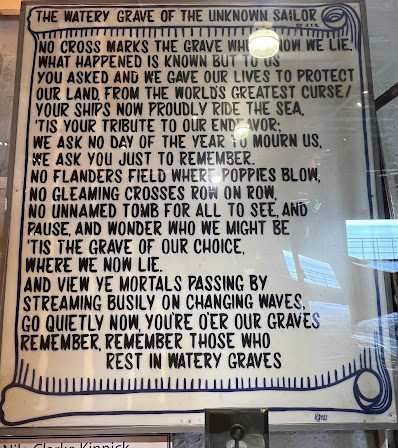 THE WATERY GRAVE OF THE UNKNOWN SAILOR
NO CROSS MARKS THE GRAVE WHERE NOW WE LIE.
WHAT HAPPENED IS KNOWN BUT TO US
YOU ASKED AND WE GAVE OUR LIVES TO PROTECT
OUR LAND, FROM THE WORLD'S GREATEST CURSE/
YOUR SHIPS NOW PROUDLY RIDE THE SEA,
'TIS YOUR TRIBUTE TO OUR ENDEAVOR;
WE ASK NO DAY OF THE YEAR TO MOURN US,
WE ASK YOU JUST TO REMEMBER.
NO FLANDERS FIELD WHERE POPPIES BLOW,
NO GLEAMING CROSSES ROW ON ROW,
NO UNNAMED TOMB FOR ALL TO SEE, AND
PAUSE, AND WONDER WHO WE MIGHT BE
'TIS THE GRAVE OF OUR CHOICE,
WHERE WE NOW LIE.
AND VIEW YE MORTALS PASSING BY
STREAMING BUSILY ON CHANGING WAVES,
GO QUIETLY NOW, YOU'RE O'ER OUR GRAVES
REMEMBER, REMEMBER THOSE WHO
REST IN WATERY GRAVES
Nile Clarke Kinnick